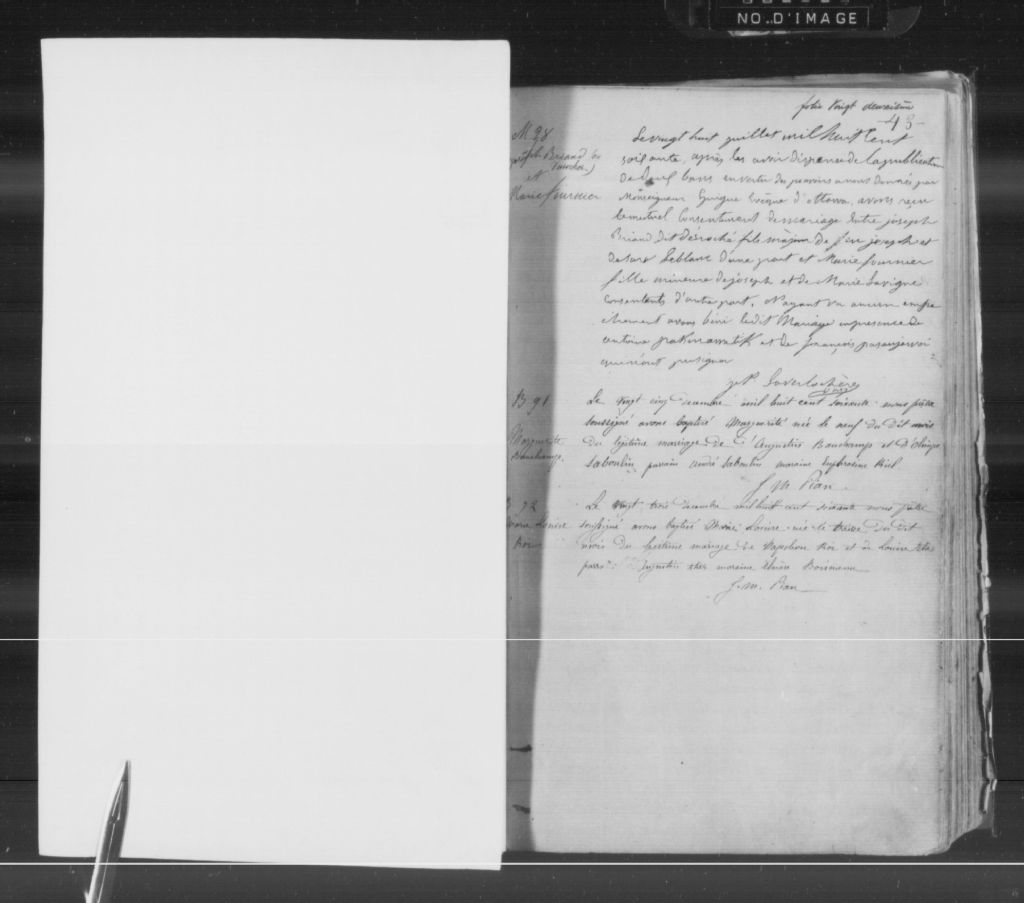 NO. D'IMAGE
folio vingt deuxième
43
M 28
Joseph Briand
et
Marie fournier
Le vingt huit juillet mil huit cent
soixante, après avoir dispense de la publication
de bans en vertu des pouvoirs a nous donnés par
Monseigneur Guigue Evêque d'ottawa, avons reçu
le mutuel Consentement de mariage Entre joseph
Briand dit Desroché fils majeur de feu joseph et
de Leblanc d'une part et Marie fournier
fille mineure de joseph et de Marie Lavigne
Consentents d'autre part. N'ayant vu aucun empe
chement avons béni ledit Mariage en presence de
antoine et de françois
qui n'ont pu signer
B 91
Marguerite
Beauchamp
Le vingt cinq decembre mil huit cent soixante nous prêtre
soussigné avons baptisé Marguerite née le neuf du dit mois
du légitime mariage de Augustin Beauchamp et d'Olimpe
Sabourin parrain andré Sabourin maraine Euphrosine Riel
J. M. Pian
B 92
Marie Louise
Roi
Le vingt trois decembre mil huit cent soixante nous prêtre
soussigné avons baptisé Marie Louise née le treize du dit
mois du légitime mariage de Napoleon Roi et de Louise
parr: Augustin maraine
J. M. Pian